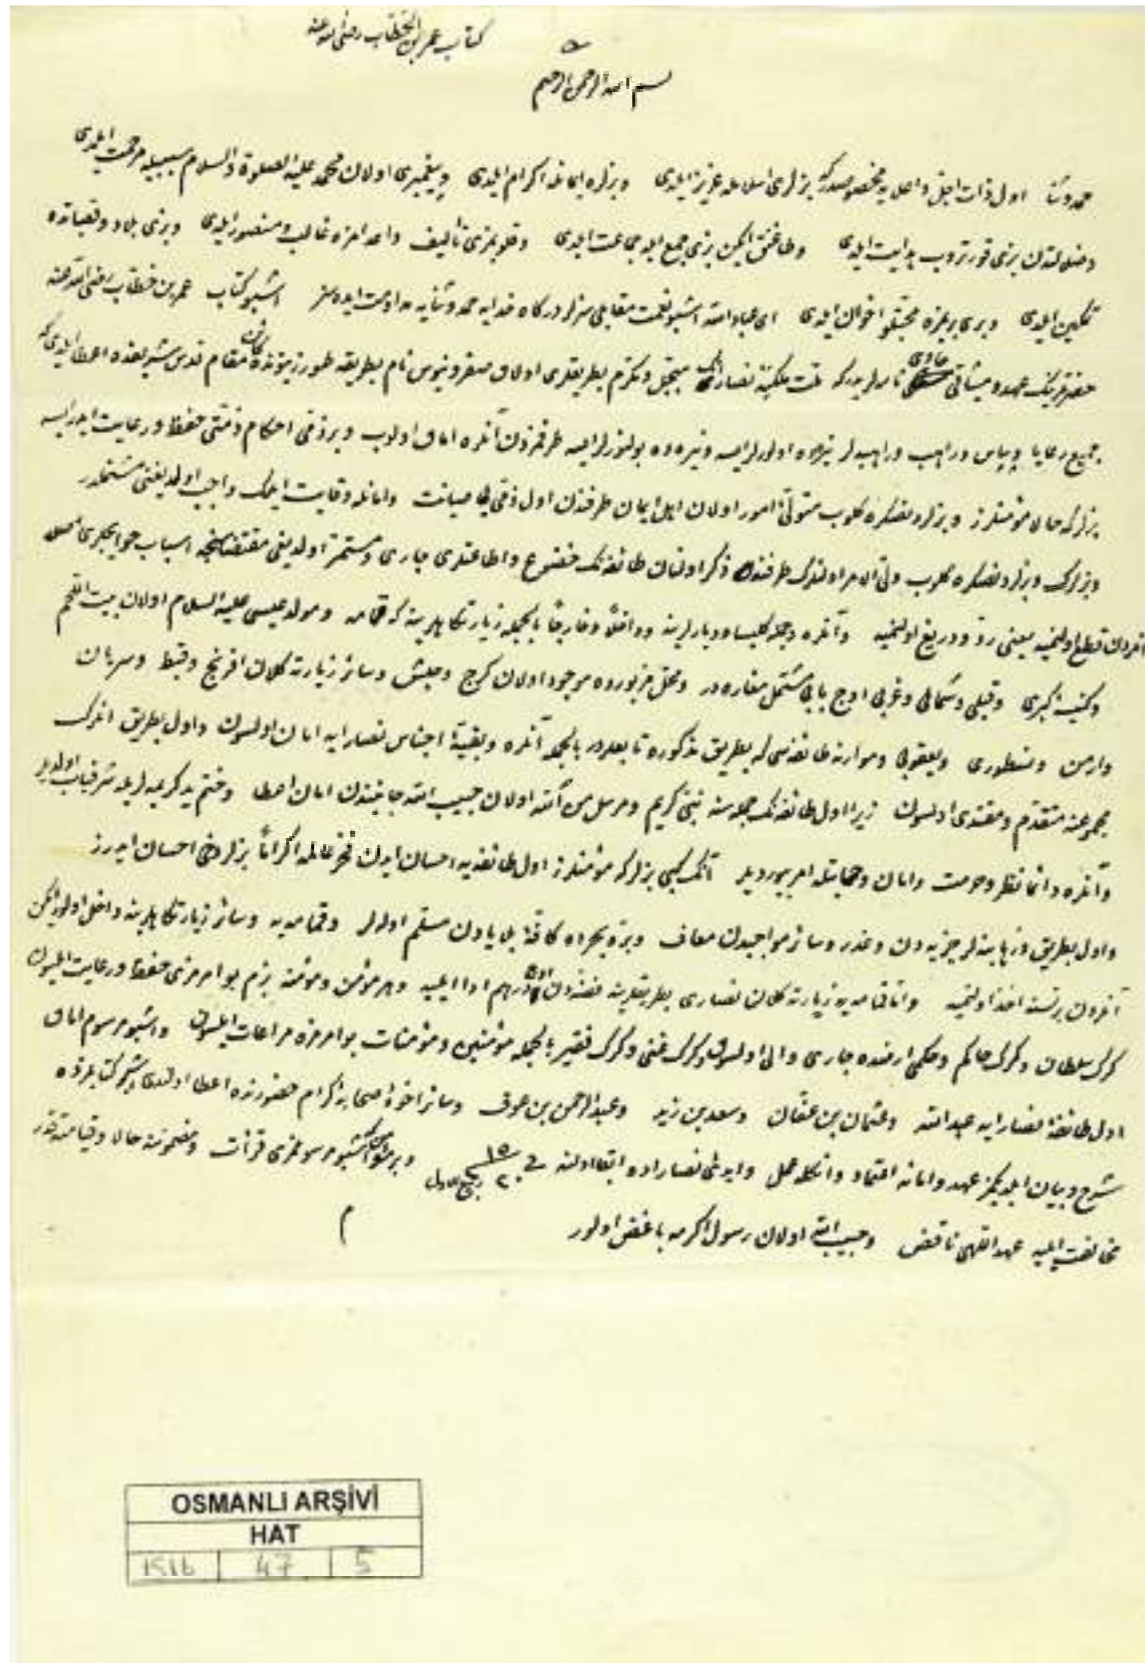 كتاب عمر بن الخطاب رضى الله عنه
بسم الله الرحمن الرحيم
حمد وثنا اول ذات اجل واعلايه مخصوصدركه بزلرى اسلامله عزيز ايلدى وبزلره ايمانله اكرام ايلدى وپيغمبرى اولان محمد عليه الصلوة والسلام سببيله مرحمت ايلدى
وضلالتدن بزى قورتروب هدايت ايلدى وطاغنق ايكن بزى جمع ايلدى وقلوبمزى تأليف واعدامزه غالب ومنصور ايلدى وبزى بلاد وقصباتده
تمكين ايلدى وبرى بريمزه محبتلو اخوان ايلدى اى عباد الله اشبو نعمت مقابلى سزلر درگاه خدايه حمد وثنايه مداومت ايده سز اشبو كتاب عمر بن خطاب رضى الله عنه
حضرتلرينك عهد وميثاقى حاوى نامه لريدركه ملت ملكيه نصارانك مبجل ومكرم بطريقلرى اولان صفرونيوس نام بطريقه طور زيتونده كائن مقام قدس شريفده اعطا ايلدى كه
جميع رعايا وپاپاس وراهب وراهبه لر نره ده اولورلر ايسه ونره ده بولنورلر ايسه طرفمزدن آنلره امان اولوب وبر ذمى احكام ذمتى حفظ ورعايت ايدر ايسه
بزلركه حالا مؤمنلرز وبزلردنصكره كلوب متولئ امور اولان اهل ايمان طرفندن اول ذمى يى صيانت وامانله وقايت ايلمك واجب اولديغنى مشتملدر
وبزلرك وبزلردنصكره كلوب ولى الامر اولنلرك طرفندن ذكر اولنان طائفه نك خضوع واطاعتلرى جارى ومستمر اولديغى مقتضاسنجه اسباب حوايجلرى
انلردن قطع اولنميه يعنى رد ودريغ اولنميه وآنلره وجمله كليسا وديارلرينه وداخلاً وخارجاً بالجمله زيارتكاهلرينه كه قمامه ومولد عيسى عليه السلام اولان بيت اللحم
وكنيسۀ كبرى وقبلى وشمالى وغربى اوچ بابى مشتمل مغاره در ومحل مزبورده موجود اولان كرج وحبش وسائر زيارته كلان افرنج وقبط وسريان
وارمن ونسطورى ويعقوبى وموارنه طائفه سى كه بطريق مذكوره تابعلردر بالجمله آنلره وبقيۀ اجناس نصارايه امان اولسون واول بطريق انلرك
مجموعنه متقدم ومقتدى اولسون زيرا اول طائفه نك جمله سنه نبئ كريم ومرسل من الله اولان حبيب الله جانبندن امان اعطا وختم يد كريمه لريله شرفياب اولديلر
وآنلره دائما نظر وحرمت وامان وحمايتله امر بيورديلر آنك كبى بزلركه مؤمنلرز اول طائفه يه احسان ايدن فخر عالمه اكراماً بزلر دخى احسان ايدرز
واول بطريق ورهابنه لر جزيه دن وغدر وسائر مواجبدن معاف وبر وبحرده كافۀ بلايادن مسلم اولالر وقمامه يه وسائر زيارتكاهلرينه داخل اولورلر ايكن
آنلردن برنسنه اخذ اولنميه واما قمامه يه زيارته كلان نصارى بطريقلرينه فضه دن درهم ادا ايليه وهر مؤمن ومؤمنه بزم بو امرمزى حفظ ورعايت ايلسون
كرك سلطان وكرك حاكم وحكمى ارضنده جارى والى اولسون وكرك غنى وكرك فقير بالجمله مؤمنين ومؤمنات بو امرمزه مراعات ايلسون واشبو مرسوم امان
اول طائفۀ نصارايه عبد الله وعثمان بن عفان وسعد بن زيد وعبد الرحمن بن عوف وسائر اخوۀ صحابۀ كرام حضورنده اعطا اولندى اشبو كتابمزده
شرح وبيان ايلديكمز عهد وامانه اعتماد وانكله عمل وايدئ نصاراده ابقا اولنه فى ٢٠ ربيع الاول سنه ١٥ وبر مؤمن اشبو مرسوممزى قرأت ومضمونه حالا وقيامته قدر
مخالفت ايليه عهد اللهى ناقض وحبيب الله اولان رسول اكرمه باغض اولور
م
OSMANLI ARŞİVİ
HAT
1516 47 5